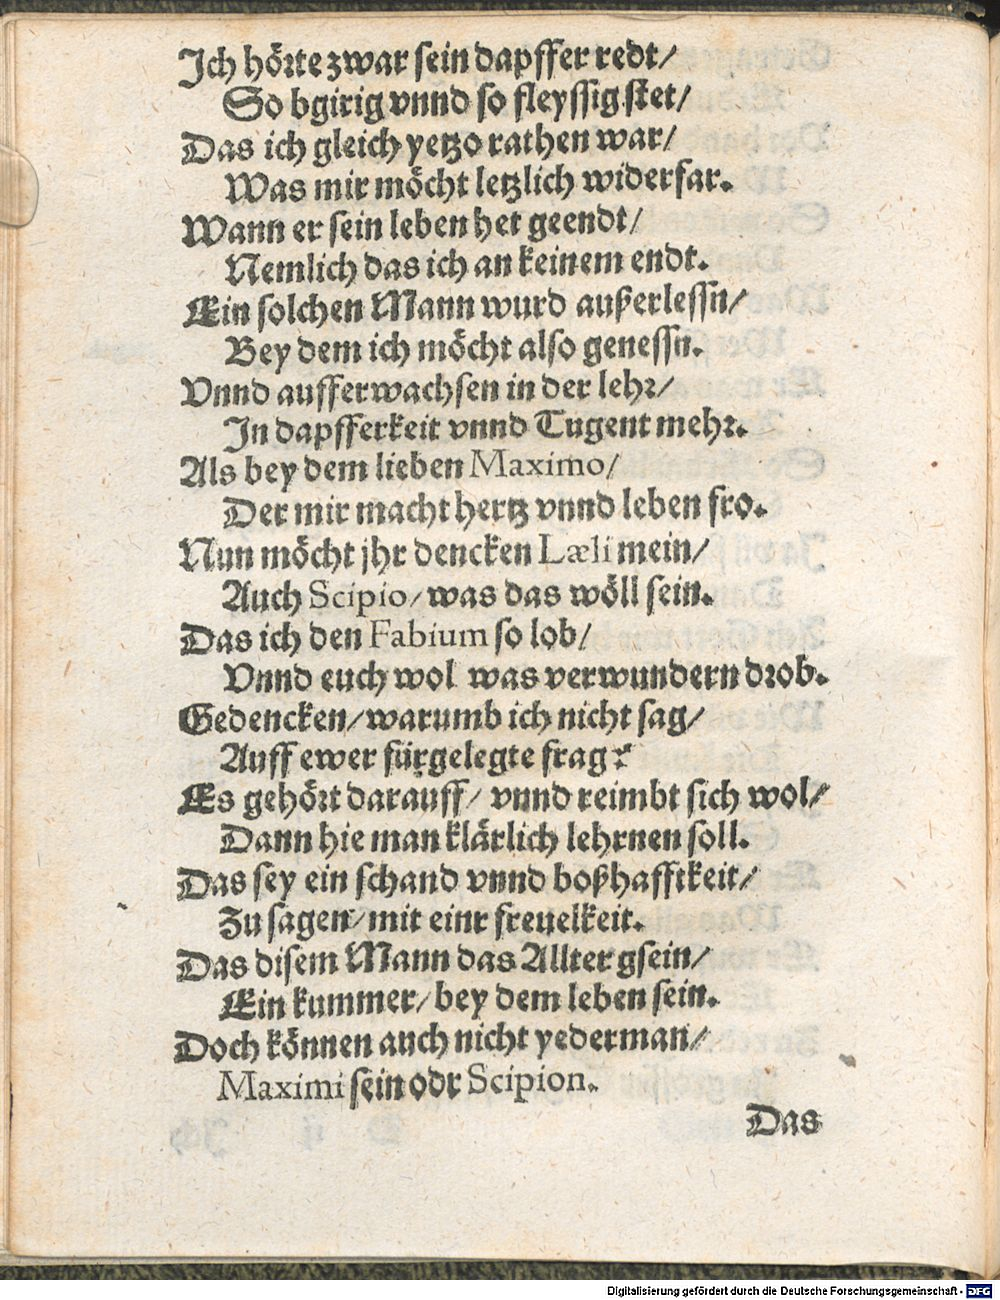 Ich hörte zwar sein dapffer redt/
So bgirig vnnd so fleyssig stet/
Das ich gleich yetzo rathen war/
Was mir möcht letzlich widerfar.
Wann er sein leben het geendt/
Nemlich das ich an keinem endt.
Ein solchen Mann wurd außerlessn/
Bey dem ich möcht also genessn.
Vnnd aufferwachsen in der lehr/
In dapfferkeit vnnd Tugent mehr.
Als bey dem lieben Maximo/
Der mir macht hertz vnnd leben fro.
Nun möcht jhr dencken Læli mein/
Auch Scipio/ was das wöll sein.
Das ich den Fabium so lob/
Vnnd euch wol was verwundern drob.
Gedencken/ warumb ich nicht sag/
Auff ewer fürgelegte frag?
Es gehört darauff/ vnnd reimbt sich wol/
Dann hie man klärlich lehrnen soll.
Das sey ein schand vnnd boßhafftkeit/
Zu sagen/ mit einr freuelkeit.
Das disem Mann das Allter gsein/
Ein kummer/ bey dem leben sein.
Doch können auch nicht yederman/
Maximi sein odr Scipion.
Das
Digitalisierung gefördert durch die Deutsche Forschungsgemeinschaft - DFG